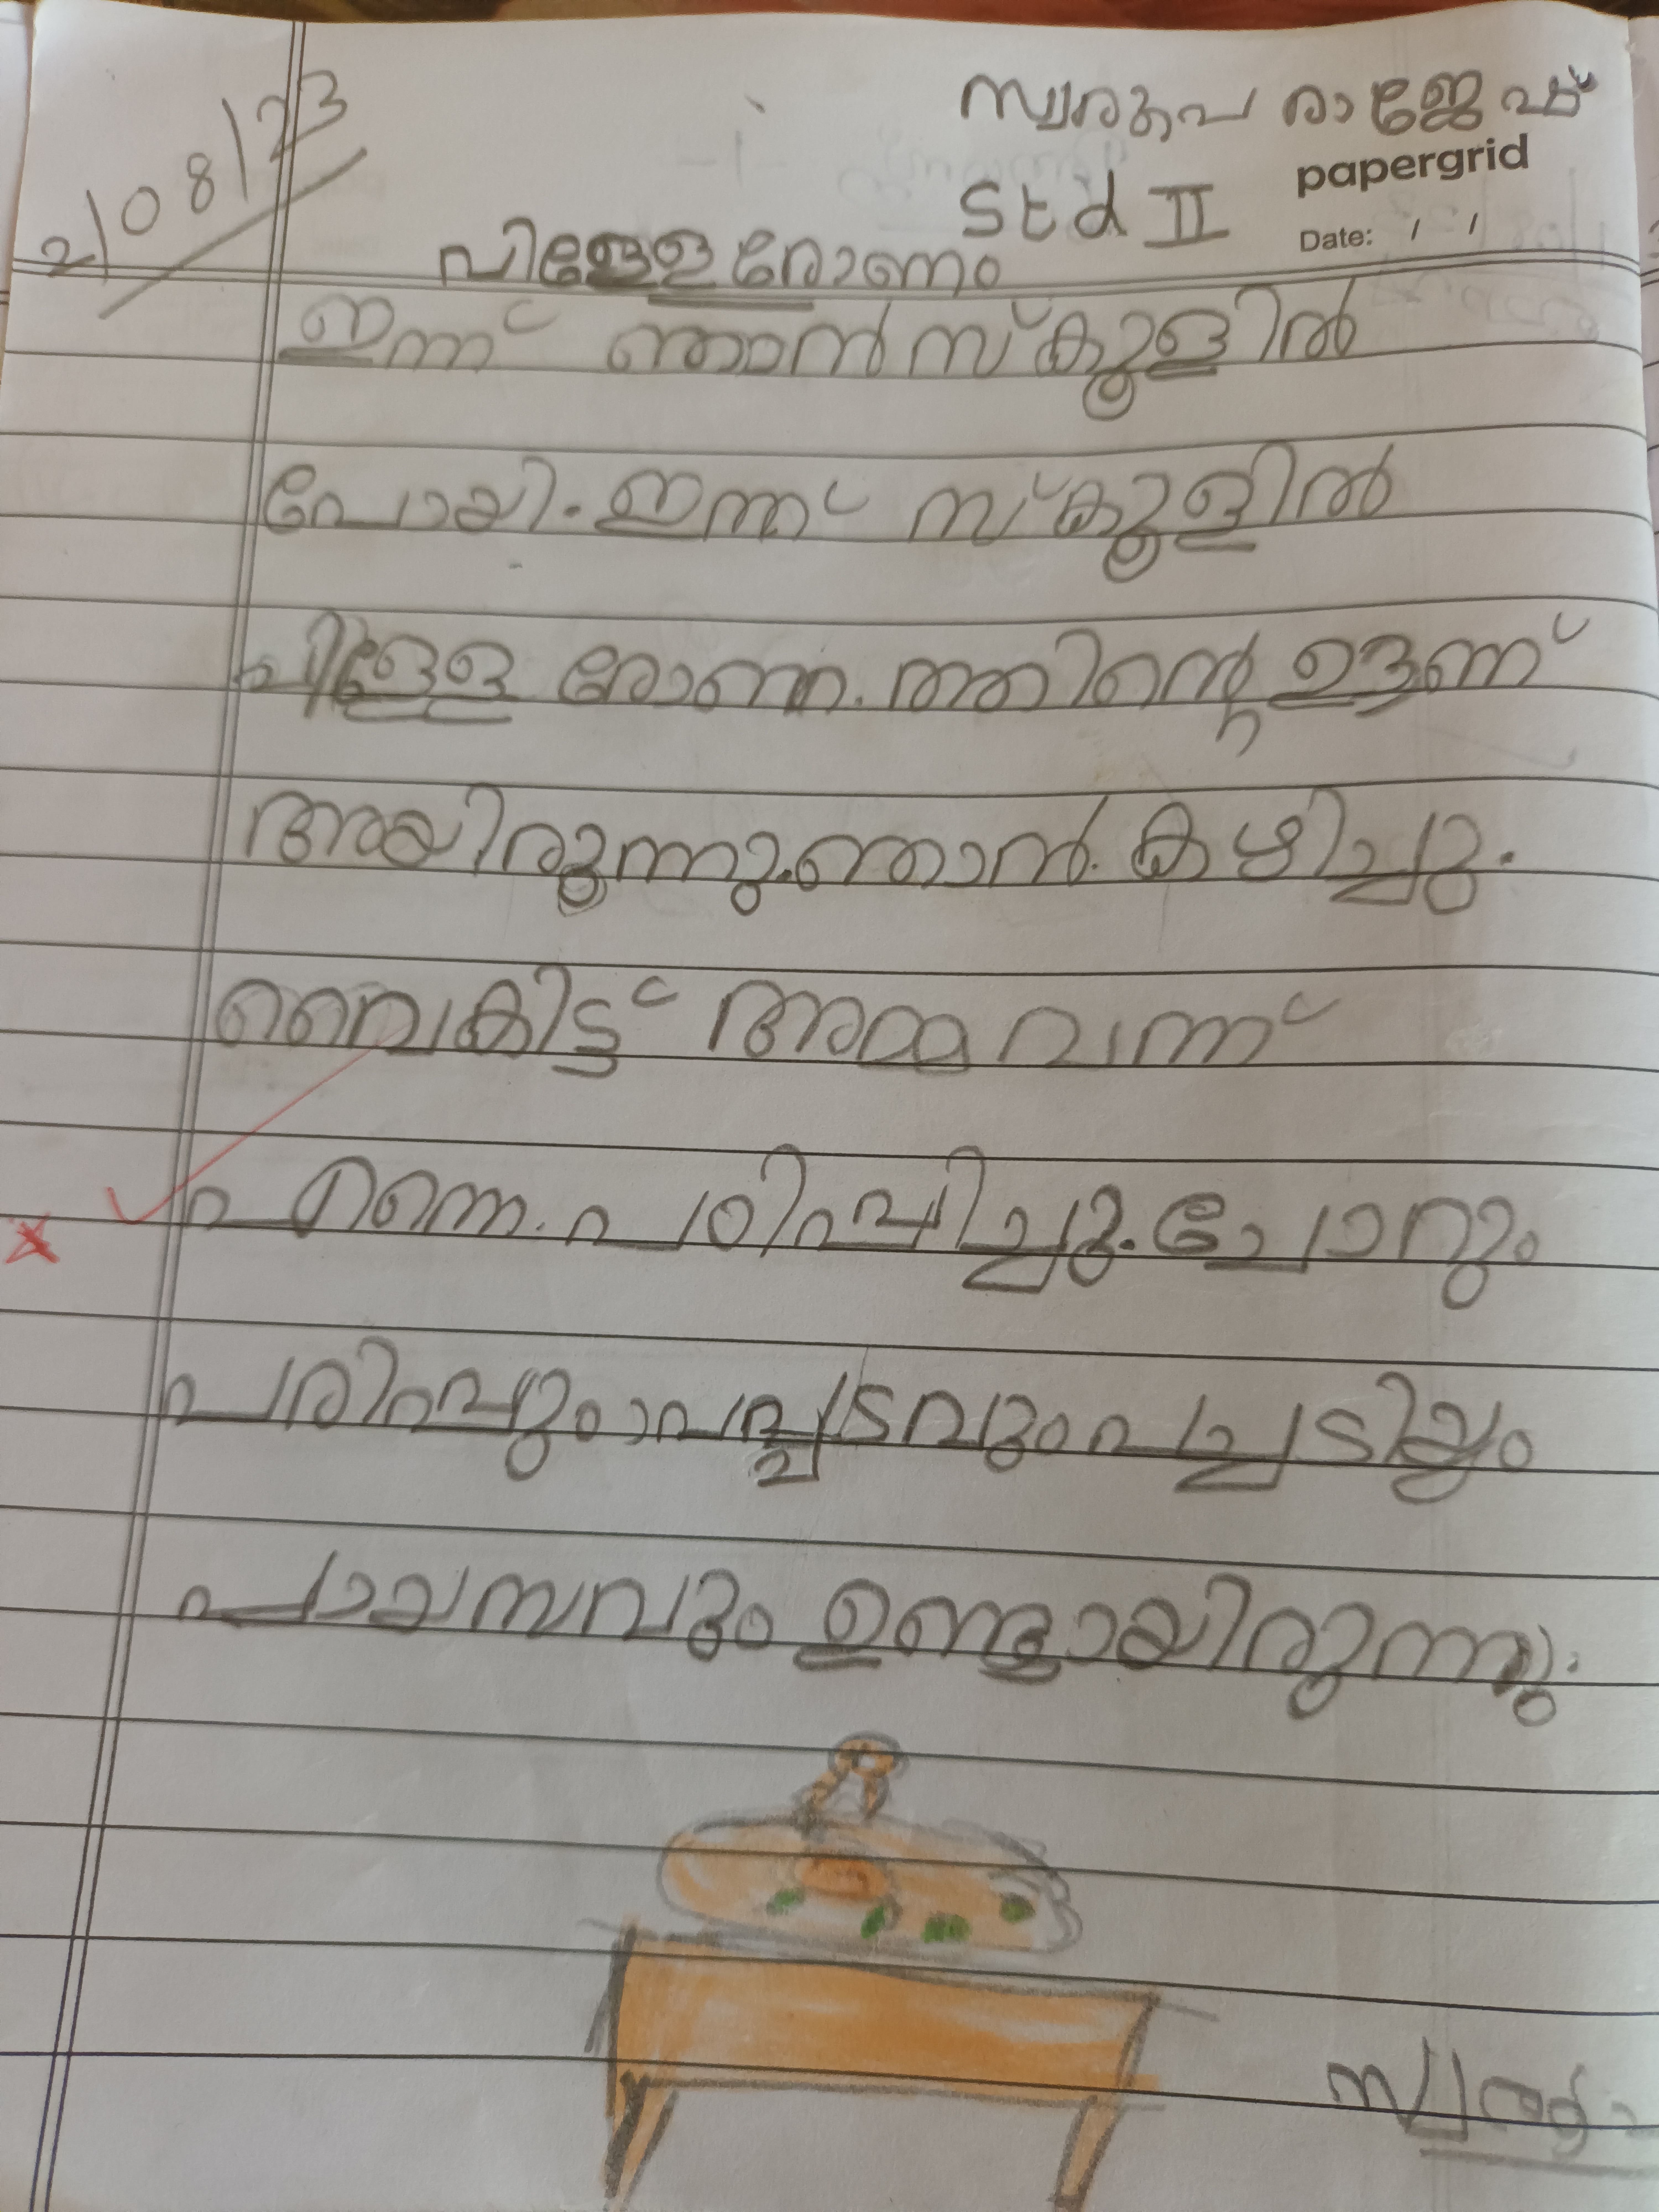 2/08/23
സ്വരൂപ രാജേഷ്
papergrid
Std II
Date: / /
പിള്ളേരോണം
ഇന്ന് ഞാൻ സ്കൂളിൽ
പോയി. ഇന്ന് സ്കൂളിൽ
പിള്ളേ രോണ. ത്തിന്റെ ഉൗണ്
അയിരുന്നു. ഞാൻ. കഴിച്ചു.
വൈകിട്ട് അമ്മ വന്ന്
എന്നെ. പരിപ്പിച്ചു. ചോറും
പരിപ്പും പപ്പടവും പച്ചടിയും
പായസവും ഉണ്ടായിരുന്നു.